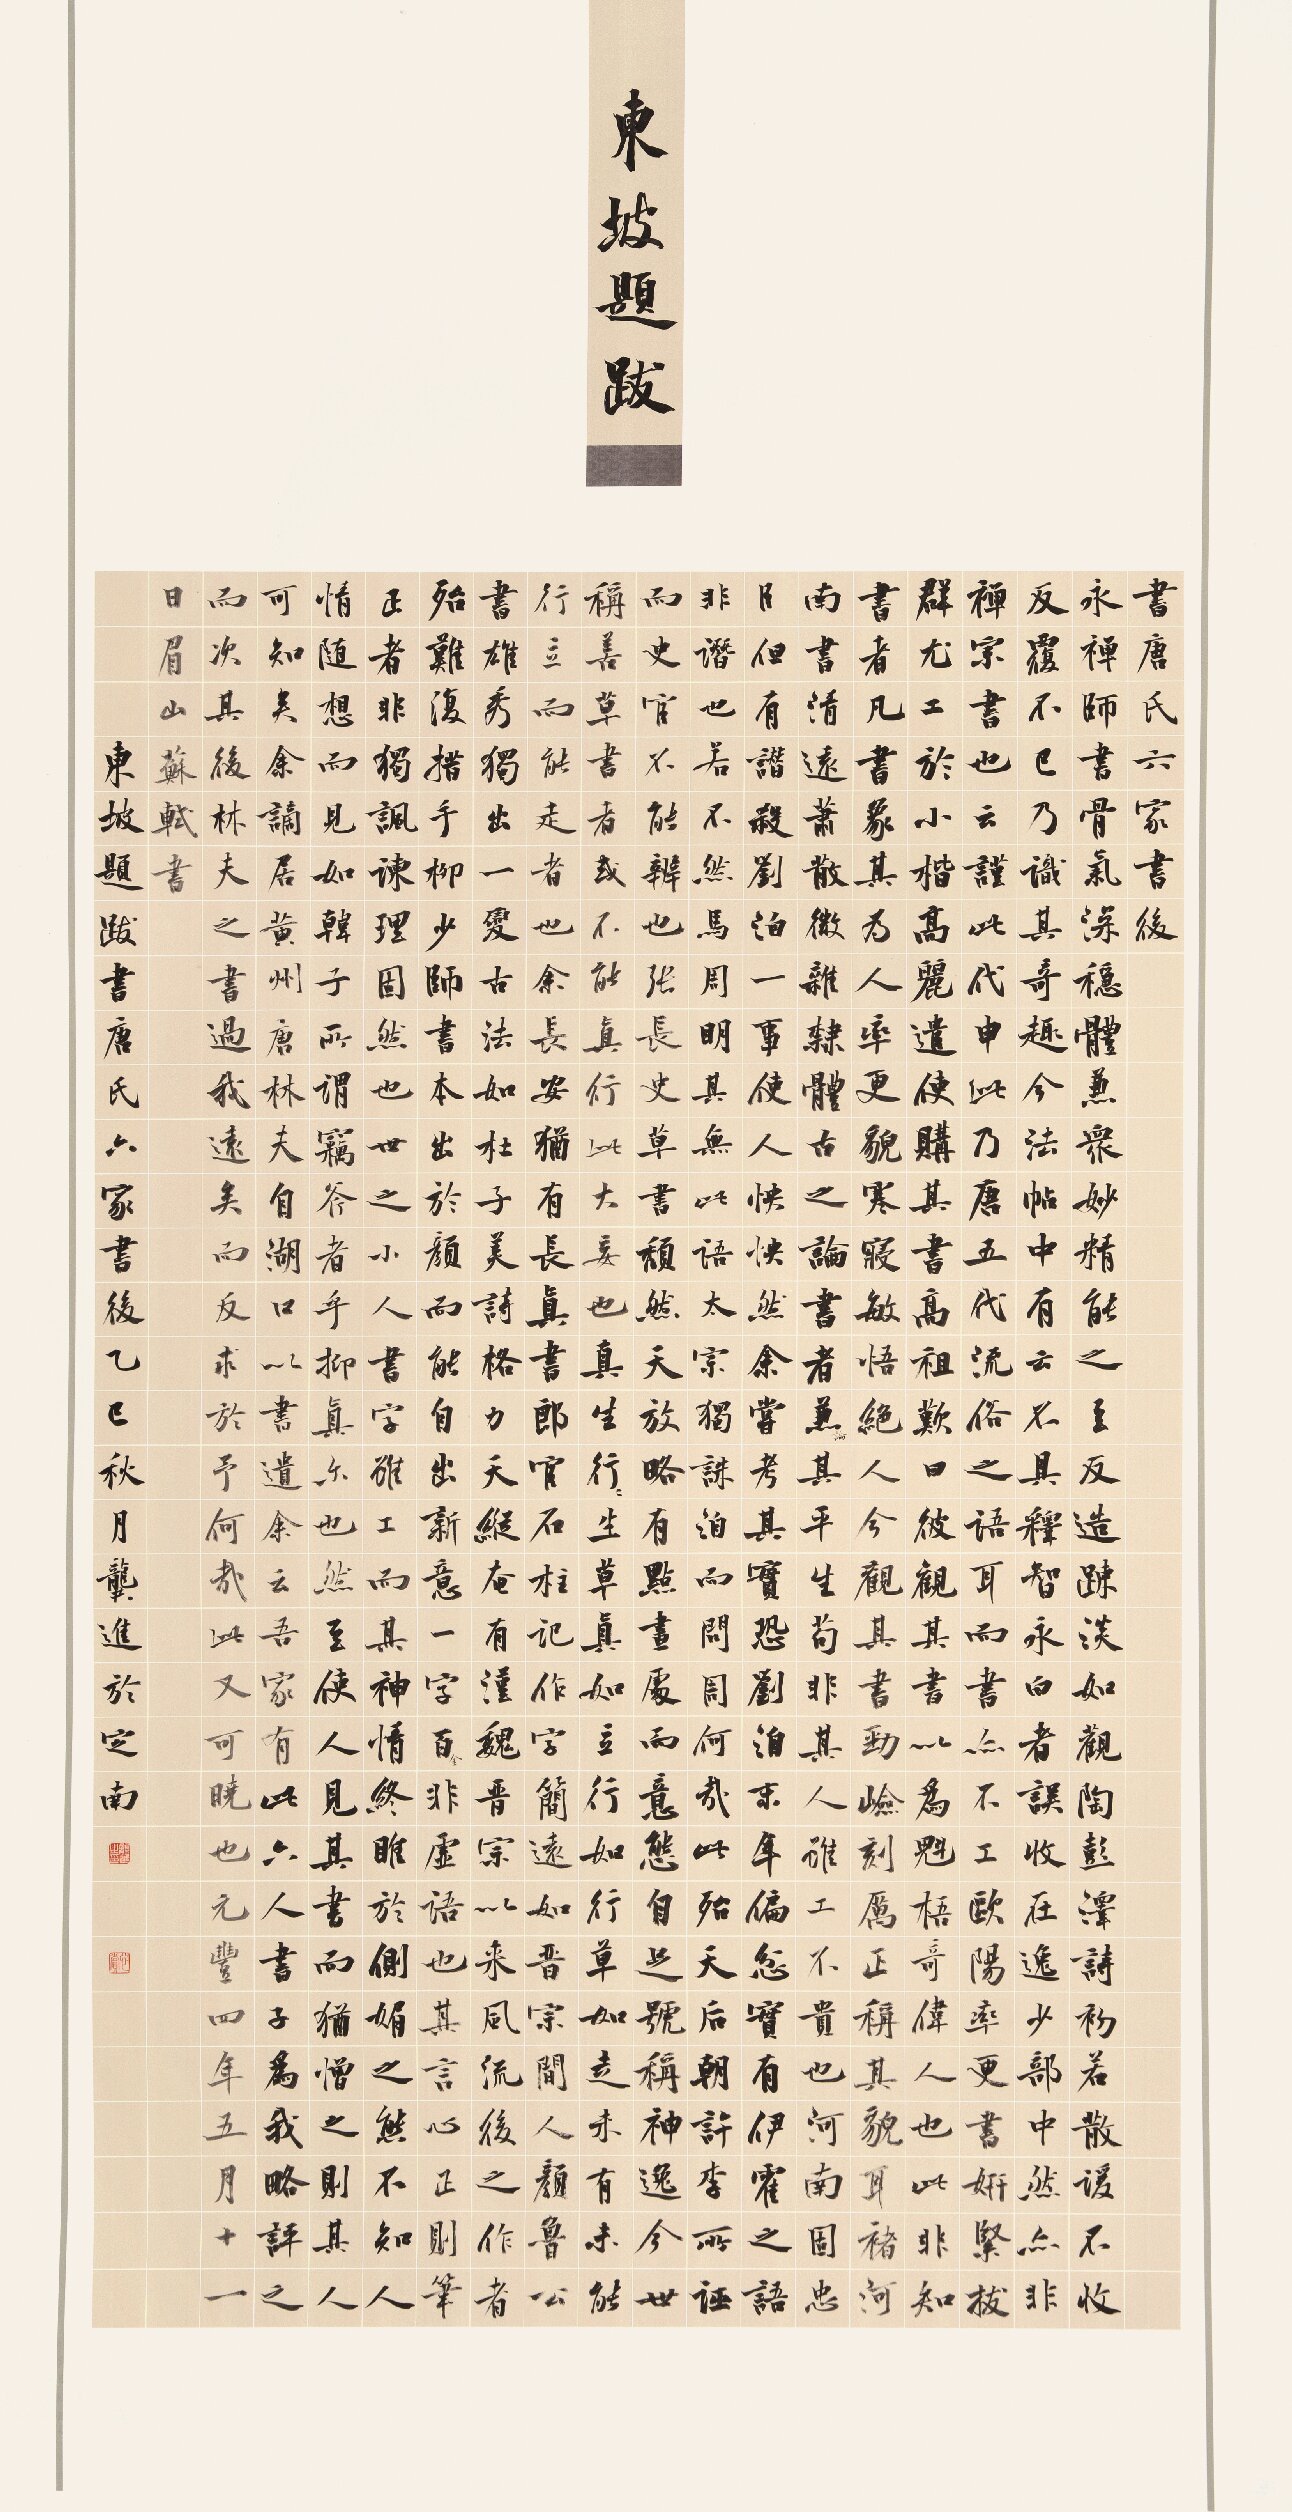 東坡題跋
書唐氏六家書後
永禪師書骨氣深穩體兼衆妙精能之至反造疎淡如觀陶彭澤詩初若散谩不收
反覆不已乃識其奇趣今法帖中有云不具釋智永白者誤收在逸少部中然亦非
禪宗書也云謹此代申此乃唐五代流俗之語耳而書亦不工歐陽率更書妍緊拔
群尤工於小楷高麗遣使購其書高祖歎曰彼觀其書以為魁梧奇偉人也此非知
書者凡書象其為人率更貌寒寢敏悟絕人今觀其書勁嶮刻厲正稱其貌耳褚河
南書清遠蕭散微雜隸體古之論書者兼其平生苟非其人雖工不貴也河南固忠
臣但有譖殺劉洎一事使人怏怏然余嘗考其實恐劉洎末年偏忿實有伊霍之語
非譖也若不然馬周明其無此語太宗獨誅洎而問周何哉此殆天后朝許李所誣
而史官不能辨也張長史草書頹然天放略有點畫處而意態自足號稱神逸今世
稱善草書者或不能真行此大妄也真生行〻生草真如立行如行草如走未有未能
行立而能走者也余長安猶有長真書郎官石柱記作字簡遠如晉宗間人顏魯公
書雄秀獨出一變古法如杜子美詩格力天縱奄有漢魏晉宗以來風流後之作者
殆難復措手柳少師書本出於顏而能自出新意一字百金非虛語也其言心正則筆
正者非獨諷諫理固然也世之小人書字雖工而其神情終睢於側媚之態不知人
情随想而見如韓子所謂竊斧者乎抑真尔也然至使人見其書而猶憎之則其人
可知矣余謫居黃州唐林夫自湖口以書遺余云吾家有此六人書子為我略評之
而次其後林夫之書過我遠矣而反求於予何哉此又可曉也元豐四年五月十一
日眉山蘇軾書
東坡題跋書唐氏六家書後乙巳秋月龔進於定南